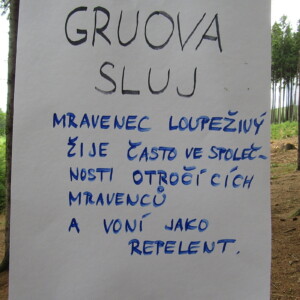 GRUOVA
SLUJ
MRAVENEC LOUPEŽIVÝ
ŽIJE ČASTO VE SPOLEČ-
NOSTI OTROČÍCÍCH
MRAVENCŮ
A VONÍ JAKO
REPELENT.